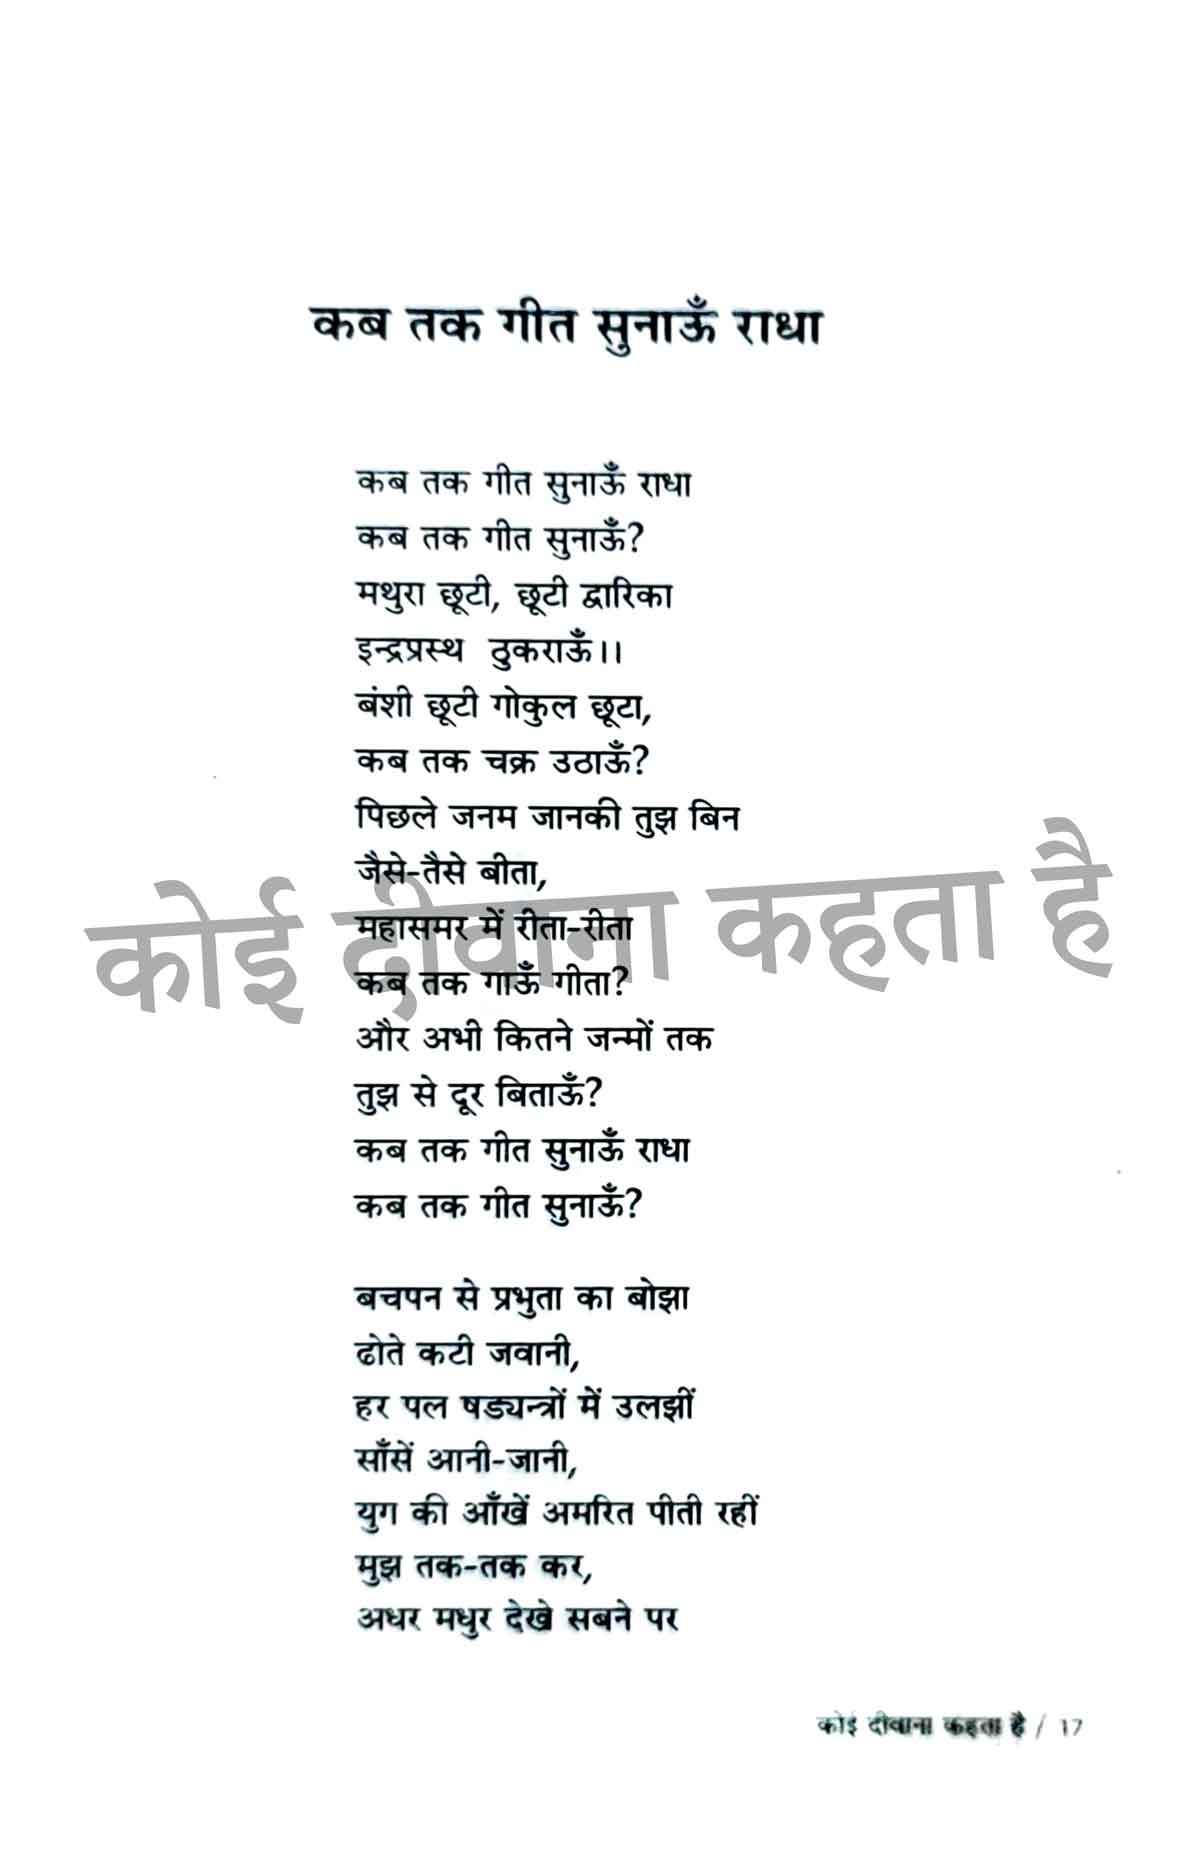 कब तक गीत सुनाऊँ राधा
कब तक गीत सुनाऊँ राधा
कब तक गीत सुनाऊँ?
मथुरा छूटी, छूटी द्वारिका
इन्द्रप्रस्थ ठुकराऊँ।।
बंशी छूटी गोकुल छूटा,
कब तक चक्र उठाऊँ?
पिछले जनम जानकी तुझ बिन
जैसे-तैसे बीता,
कोई दीवाना कहता है
महासमर में रीता-रीता
कब तक गाऊँ गीता?
और अभी कितने जन्मों तक
तुझ से दूर बिताऊँ?
कब तक गीत सुनाऊँ राधा
कब तक गीत सुनाऊँ?
बचपन से प्रभुता का बोझा
ढोते कटी जवानी,
हर पल षड्यन्त्रों में उलझीं
साँसें आनी-जानी,
युग की आँखें अमरित पीती रहीं
मुझ तक-तक कर,
अधर मधुर देखे सबने पर
कोई दीवाना कहता है / 17